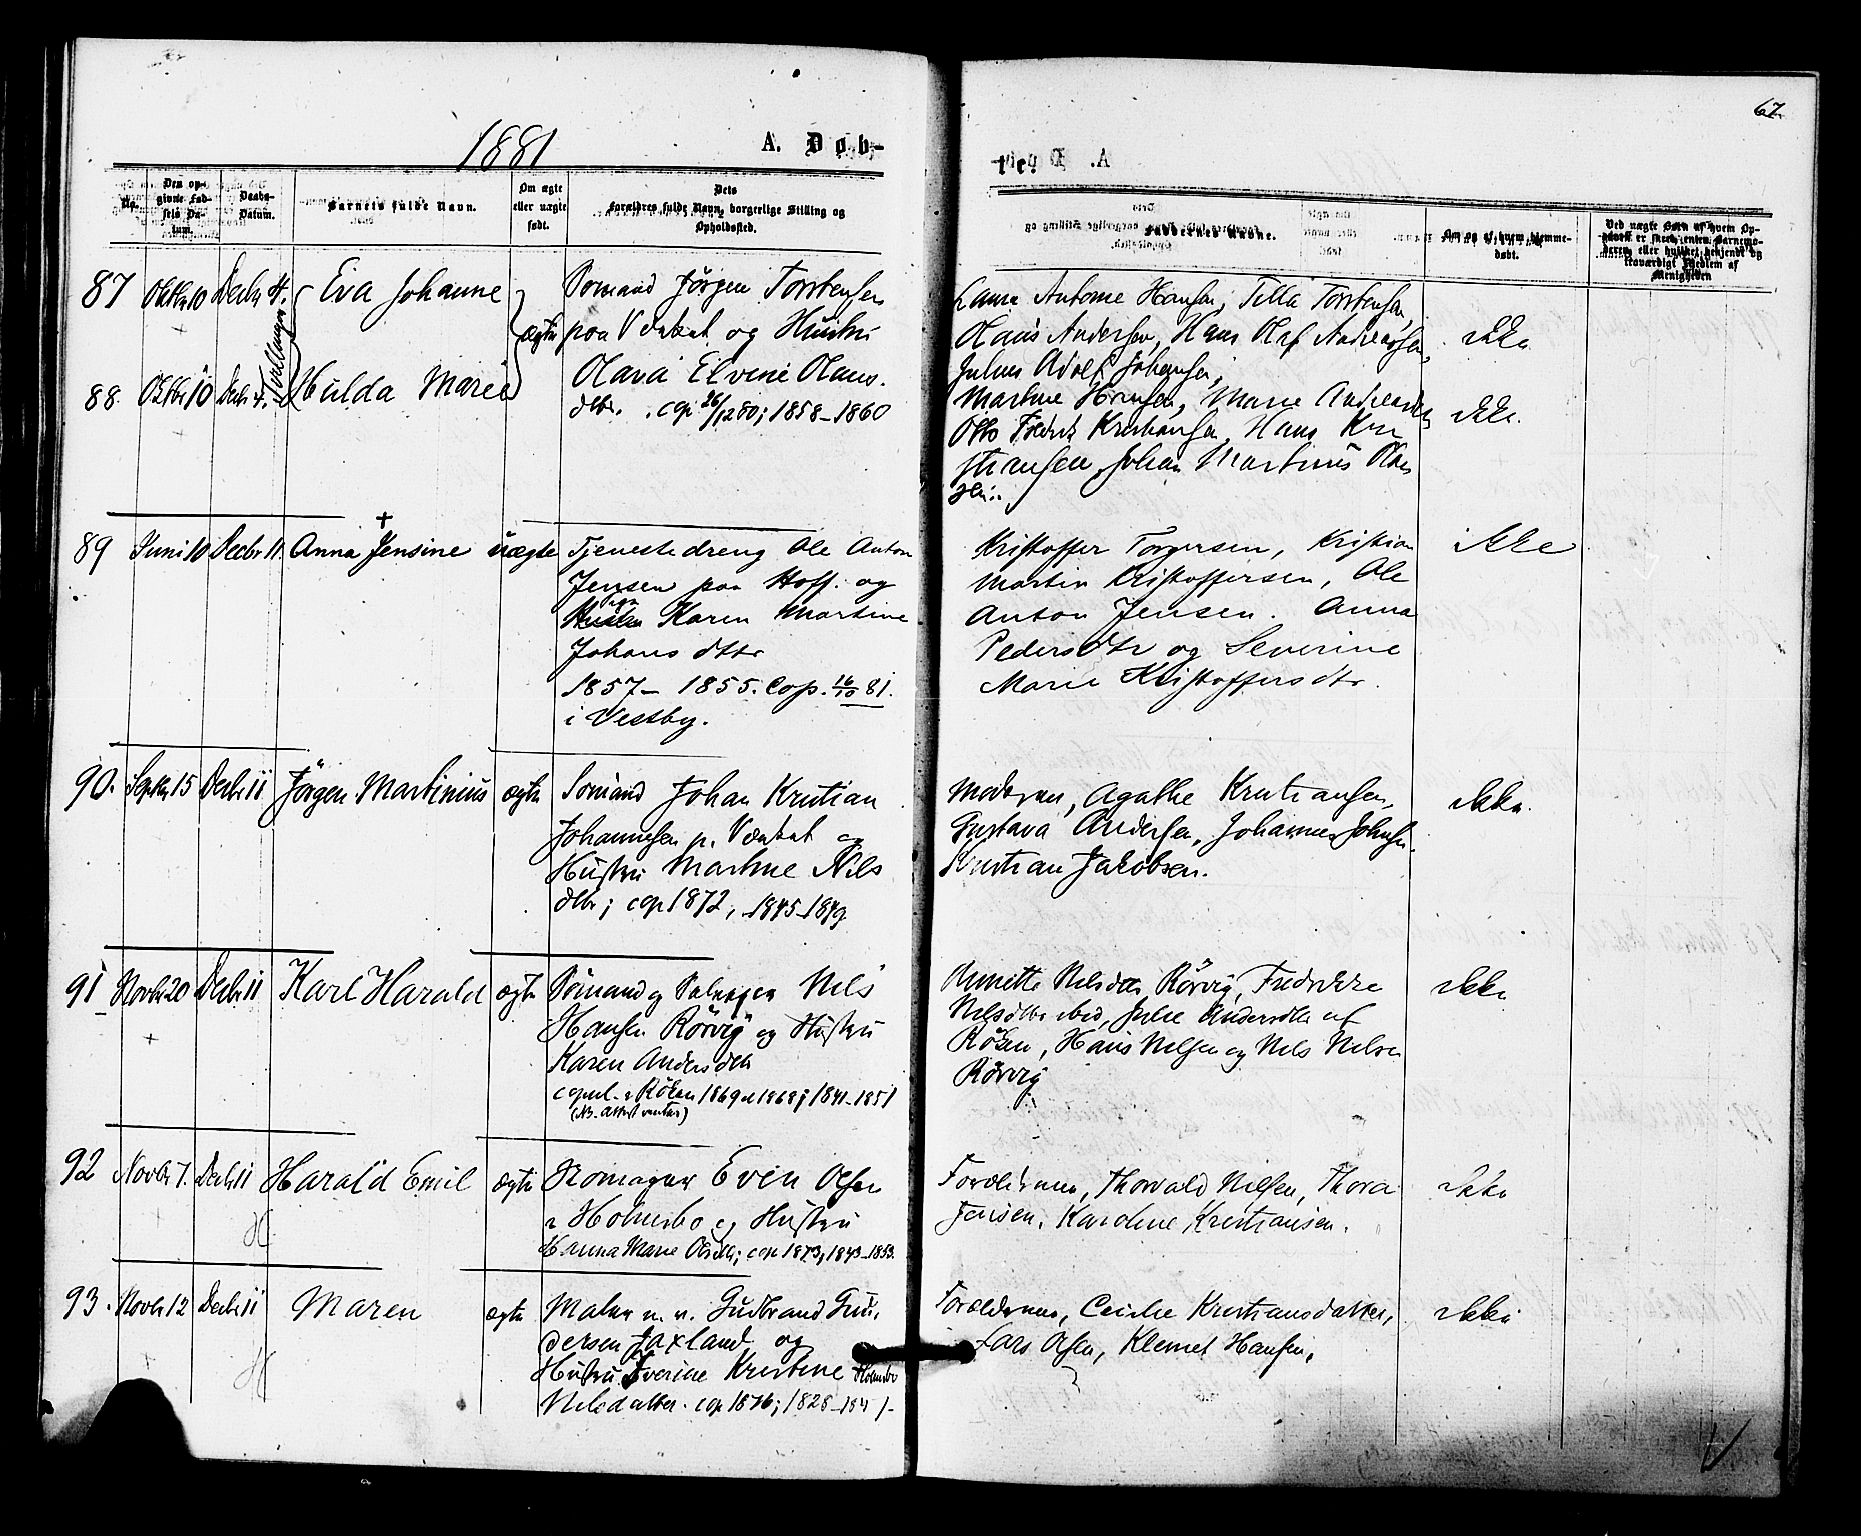 67.
1881
A. Døb-
te.
No.
Den opgivne Fødsels Datum.
Daabs-Datum.
Barnets fulde Navn.
Om ægte eller uægte født.
Dets Forældres fulde Navn, borgerlige Stilling og Opholdssted.
Faddernes Navne.
Om og af hvem hjemmedøbt.
87 Oktbr 10 Decbr 4. Eva Johanne
Tvillinger
ægte
Sömand Jörgen Torstensen
paa Vœnbat og Hustru
Olava Elvine Olaus.
dtr. cop 26/12 80; 1858–1860
Laura Antonie Hansen, Tilla Torstensen,
Olaus Andersen, Hans Olaf Andreassen,
Julius Adolf Johansen,
ikke
88. Oktbr 10 Decbr 4. Hulda Marie
Martine Hansen, Marie
Otto Fredrik Kristiansen, Hans Kri
stiansen, Johan Martinus
ikke.
89 Juni 10 Decbr 11. Anna Jensine uægte
Tjenestedreng Ole Anton
Jensen paa Hoff. og
Karen Martine
Johans dttr
1857– 1855. Cop. 16/10 81.
i Vestby.
Kristoffer Torgersen, Kristian
Martin Kristoffersen, Ole
Anton Jensen. Anna
Pedersdtr og Severine
Marie Kristoffersdtr.
ikke
90. Septbr 15 Decbr 11 Jörgen Martinius ægte
Sömand Johan Kristian
Johannesen p. Vœnbat og
Hustru Martine Nils
dtr; cop 1872, 1845–1849
Moderen, Agathe Kristiansen,
Gustava Andersen, Johannes Johnsen.
Kristian Jakobsen.
ikke.
91 Novbr 20 Decbr 11 Karl Harald ægte
Sömand og Nils
Hansen Rörvig og Hustru
Karen Andersdtr
copul. i Röken 1869 1868; 1841–1851
(NB. Attest ventes)
Annette Nelsdtr Rörvig, Fredrikke
Nelsdtr ibid, Julie Andersdtr af
Röken, Hans Nelsen og Nels Nelsen
Rörvig
ikke
92 Novbr 7. Decbr 11 Harald Emil ægte
H
Skomager Even Olsen
i Holmsbo og Hustru
Hanna Marie Olsdtr; cop 1873, 1843–1853.
Forældrene, Thorvald Nilsen, Thora
Jensen. Karoline Kristiansen.
ikke
93. Novbr 12 Decbr 11 Maren ægte
H
Maler m. m. Gudbrand Gun.
dersen Jaxland og
Hustru Severine Kristine Holmsbo
Nilsdatter. cop 1876; 1828–1841
Forældrene, Cecilie Kristiansdatter,
Lars Olsen, Klemet Hansen.
ikke